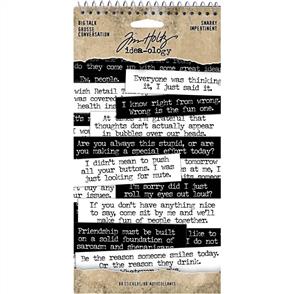 BIG TALK
GROSSE
CONVERSATION
Tim Holtz®
idea-ology
SNARKY
IMPERTINENT
do they come up with some great ideas
Ew, people.
Everyone was thinking
it, I just said it.
wish Retail
was covered
health ins
I know right from wrong.
Wrong is the fun one.
At
I'm grateful that
thoughts don't actually appear
in bubbles over our heads.
Are you always this stupid, or are
you making a special effort today?
I didn't mean to push
all your buttons. I was
just looking for mute.
tomorrow
es at me, I
its
I'm sorry did I just
roll my eyes out loud?
If you don't have anything nice
to say, come sit by me and we'll
make fun of people together.
Friendship must be built
on a solid foundation of
sarcasm and
I like to
I do not
Be the reason someone smiles today.
Or the reason they drink.
Whatever